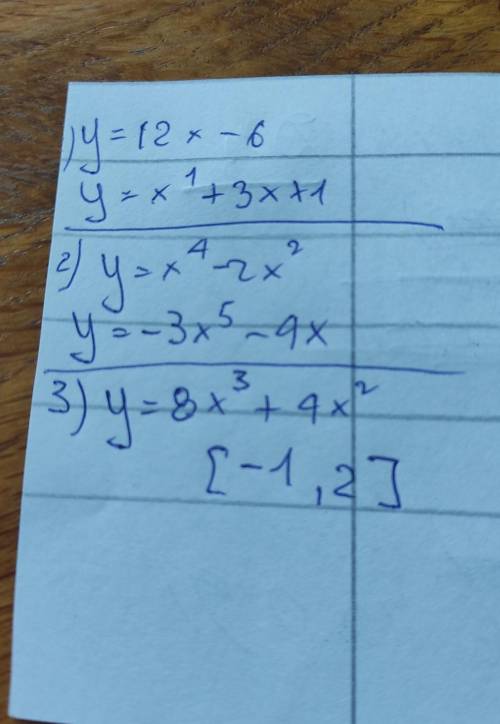 1) y = 12x - 6
y = x¹ + 3x + 1
2) y = x⁴ - 2x²
y = -3x⁵ - 4x
3) y = 8x³ + 4x²
[-1, 2]